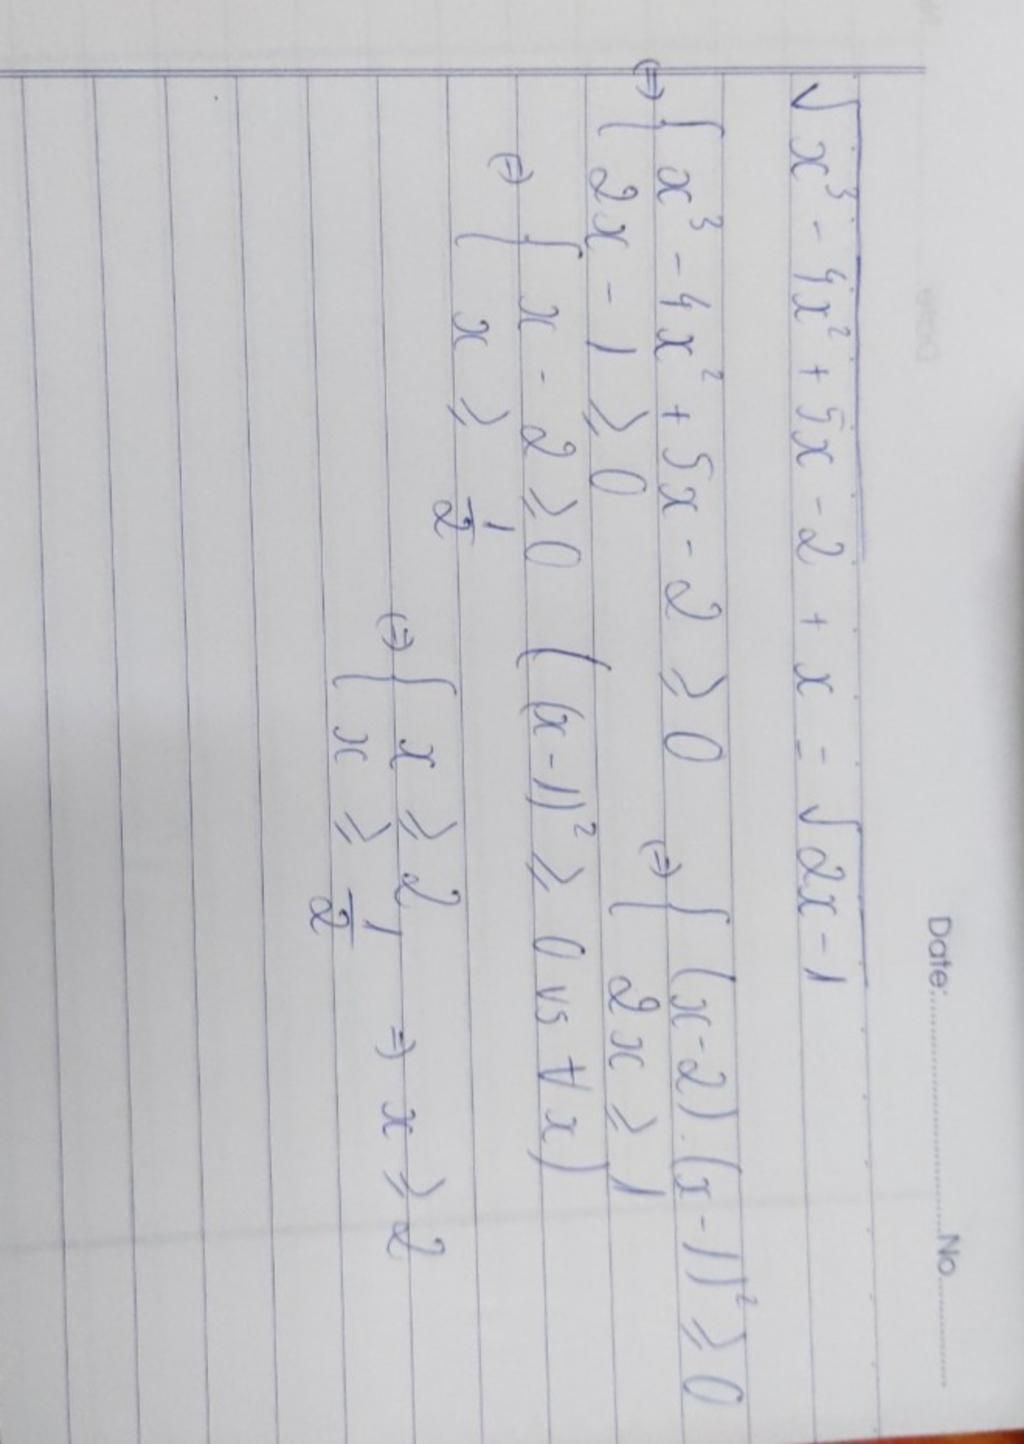 Date:........................No..............
√x³ - 4x² + 5x - 2 + x = √2x - 1
(=) { x³ - 4x² + 5x - 2 ≥ 0 (=) { (x-2).(x-1)² ≥ 0
2x - 1 ≥ 0 2x ≥ 1
(=) { x - 2 ≥ 0 ((x-1)² ≥ 0 vs ∀x)
x ≥ 1/2
(=) { x ≥ 2 =) x ≥ 2
x ≥ 1/2